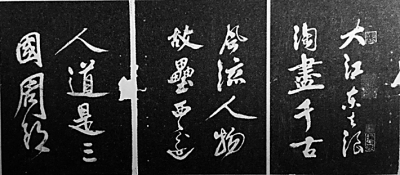 大江东去浪
淘盡千古
風流人物
故壘西邊
人道是三
國周郎